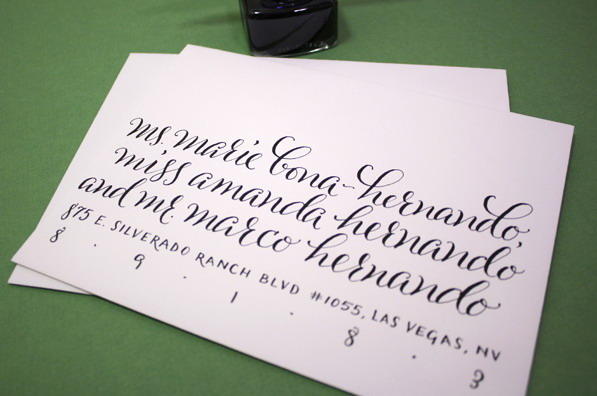 ms. marie bona-hernando,
miss amanda hernando
and mr. marco hernando
875 E. SILVERADO RANCH BLVD #1055, LAS VEGAS, NV
8 . 9 . 1 . 8 . 3